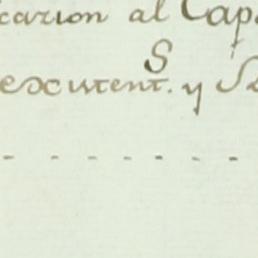 cacion al Cap
S
excutent. y S